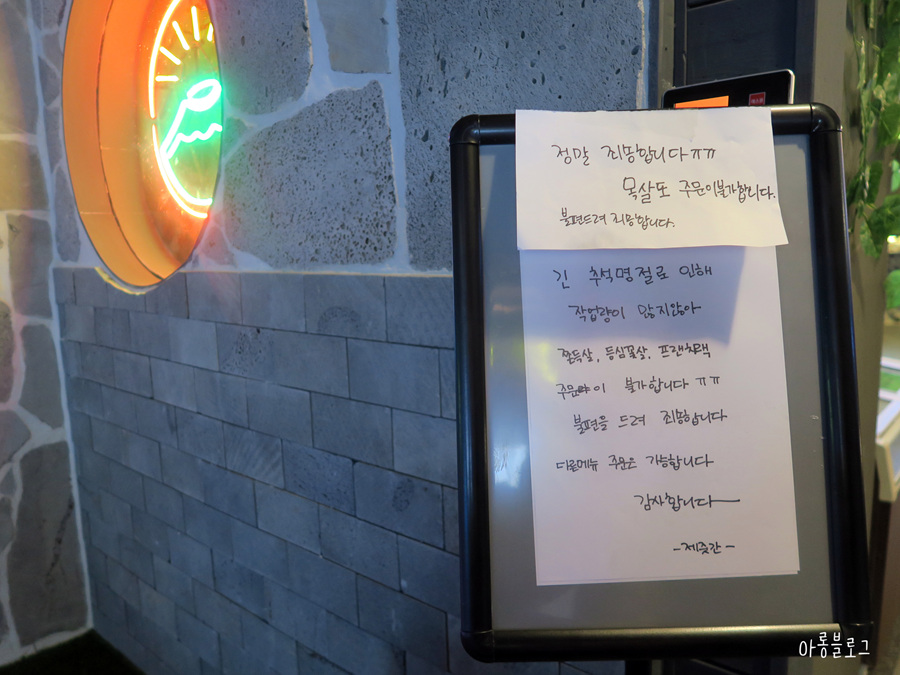 정말 죄송합니다ㅠㅠ
목살도 주문이불가합니다.
불편드려 죄송합니다.
긴 추석명절로 인해
작업량이 많지않아
쫀득살, 등심꽃살, 프렌치랙
주문이 불가합니다 ㅠㅠ
불편을 드려 죄송합니다
다른메뉴 주문은 가능합니다
감사합니다
-제줏간-
아롱블로그